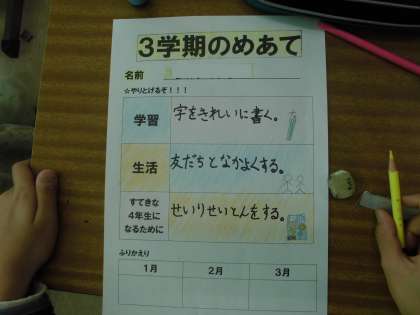 3学期のめあて
名前
☆やりとげるぞ！！！
学習
字をきれいに書く。
生活
友だちとなかよくする。
すてきな
4年生に
なるために
せいりせいとんをする。
ふりかえり
1月 2月 3月